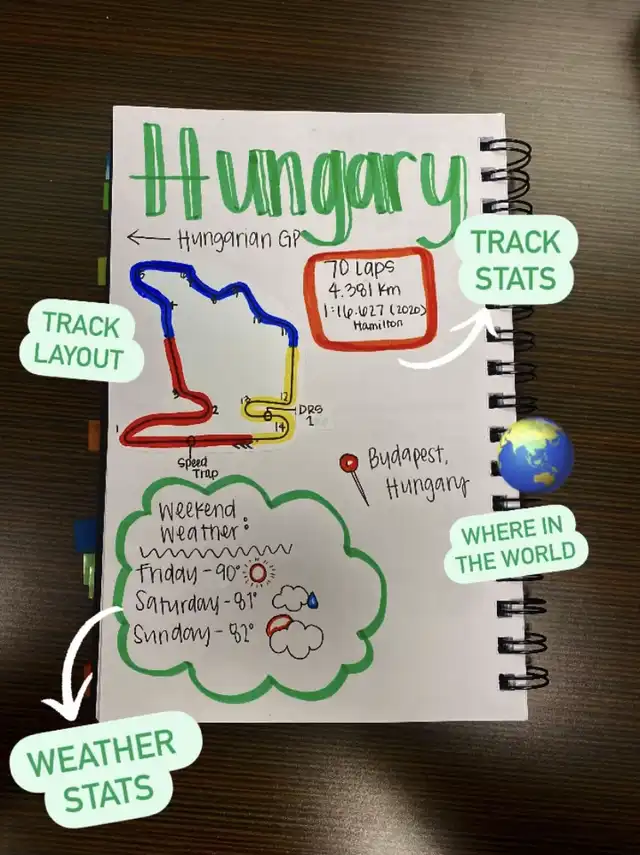 Hungary
← Hungarian GP
TRACK
STATS
70 Laps
4.381 km
1:16.627 (2020)
Hamilton
TRACK
LAYOUT
5
4
11
3
2
13
12
DRS
1
1
14
Speed
Trap
Budapest,
Hungary
WHERE IN
THE WORLD
Weekend
Weather:
Friday - 90°
Saturday - 81°
Sunday - 82°
WEATHER
STATS